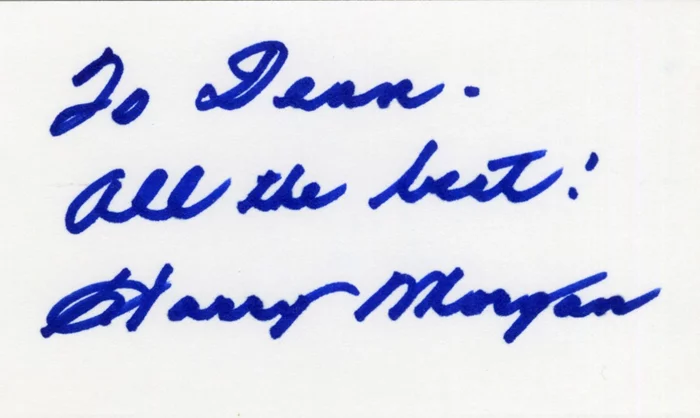 To Dean.
All the best!
Harry Morgan